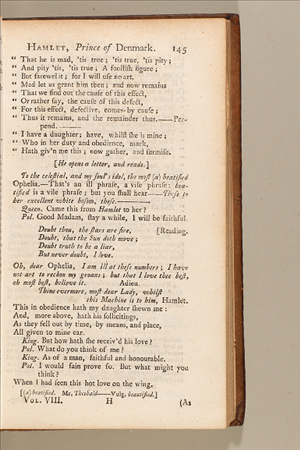 HAMLET, Prince of Denmark. 145
“ That he is mad, 'tis true; 'tis true, 'tis pity;
“ And pity 'tis, 'tis true; A foolish figure;
“ But farewel it; for I will use no art.
“ Mad let us grant him then; and now remains
“ That we find out the cause of this effect,
“ Or rather say, the cause of this defect,
“ For this effect, defective, comes by cause;
“ Thus it remains, and the remainder thus.——Per-
pend.———
“ I have a daughter; have, whilst she is mine;
“ Who in her duty and obedience, mark,
“ Hath giv'n me this; now gather, and surmise.
[He opens a letter, and reads.]
To the celestial, and my soul's idol, the most (a) beatified
Ophelia.—That's an ill phrase, a vile phrase: bea-
tified is a vile phrase; but you shall hear.—These to
her excellent white bosom, these.———
Queen. Came this from Hamlet to her?
Pol. Good Madam, stay a while, I will be faithful.
Doubt thou, the stars are fire, [Reading.
Doubt, that the Sun doth move;
Doubt truth to be a liar,
But never doubt, I love.
Oh, dear Ophelia, I am ill at these numbers; I have
not art to reckon my groans; but that I love thee best,
oh most best, believe it. Adieu.
Thine evermore, most dear Lady, whilst
this Machine is to him, Hamlet.
This in obedience hath my daughter shewn me:
And, more above, hath his sollicitings,
As they fell out by time, by means, and place,
All given to mine ear.
King. But how hath she receiv'd his love?
Pol. What do you think of me?
King. As of a man, faithful and honourable.
Pol. I would fain prove so. But what might you
think?
When I had seen this hot love on the wing,
[(a) beatified. Mr. Theobald——Vulg. beautified.]
VOL. VIII. H (As